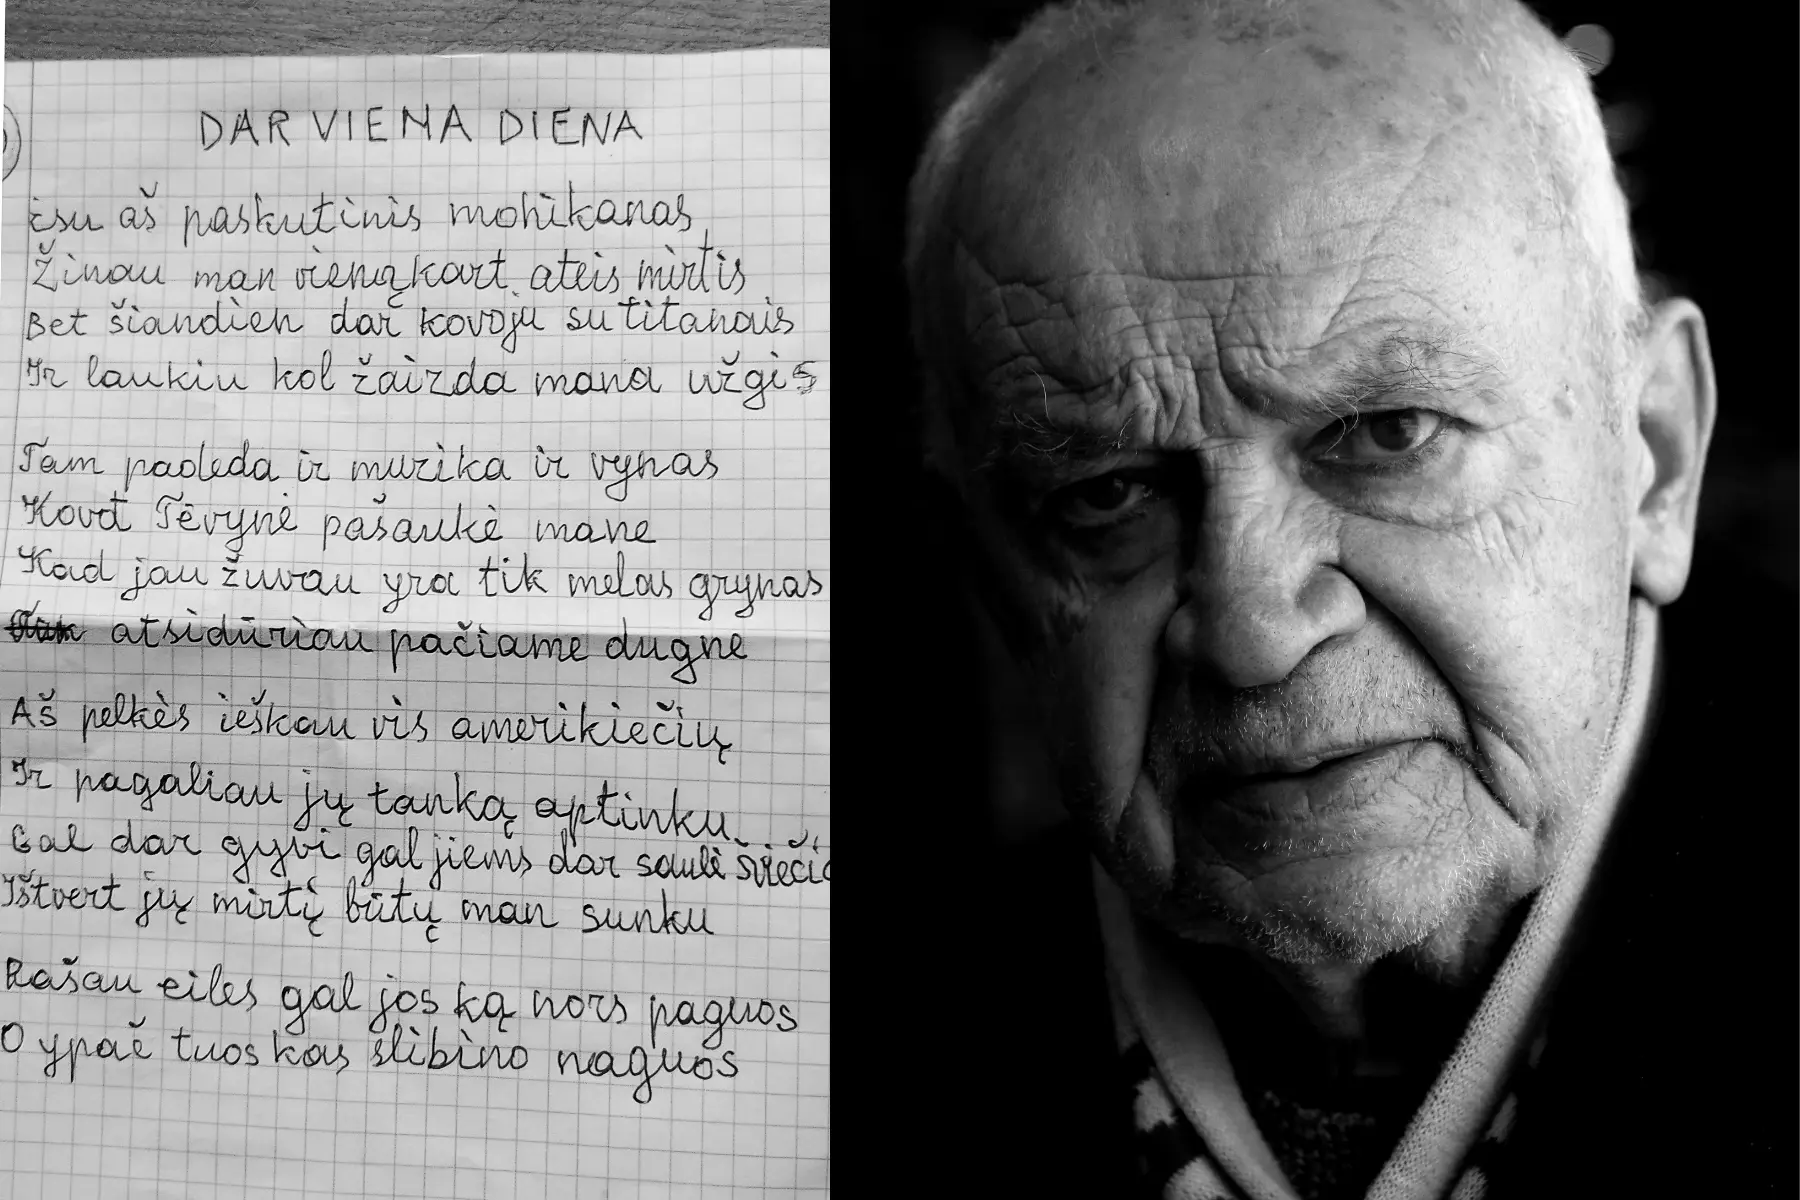 DAR VIENA DIENA
esu aš paskutinis mohikanas
Žinau man vienąkart ateis mirtis
Bet šiandien dar kovoju su titanais
Ir laukiu kol žaizda mana užgis
Tam padeda ir muzika ir vynas
Kovot Tėvynė pašaukė mane
Kad jau žuvau yra tik melas grynas
atsidūriau pačiame dugne
Aš pelkės ieškau vis amerikiečių
Ir pagaliau jų tanką aptinku
Gal dar gyvi gal jiems dar saulė šviečia
Ištvert jų mirtį būtų man sunku
Rašau eiles gal jos ką nors paguos
O ypač tuos kas slibino naguos